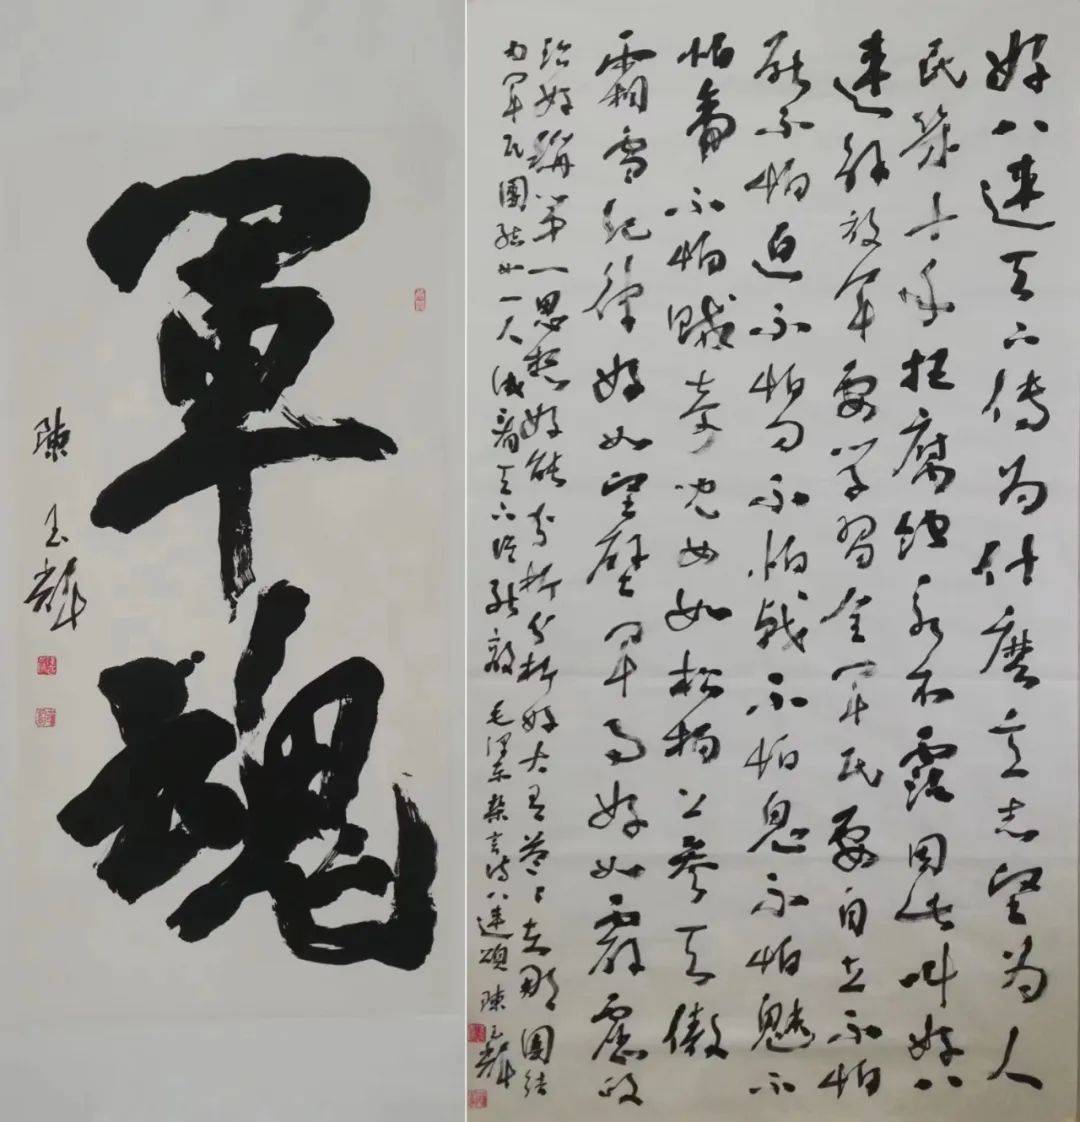 軍魂
陳玉輝
好八連天下傳為什麽意志堅為人
民幾十年拒腐蝕永不霑因此叫好八
連解放軍要學習全軍民要自立不怕
壓不怕迫不怕刀不怕戟不怕鬼不怕魅不
怕帝不怕賊奇兒女如松柏上參天傲
霜雪紀律好如堅壁軍事好如霹靂政
治好稱第一思想好能分析分析好大有益益在那團結
力軍民團結如一人試看天下誰能敵 毛澤東雜言詩八連頌 陳玉輝